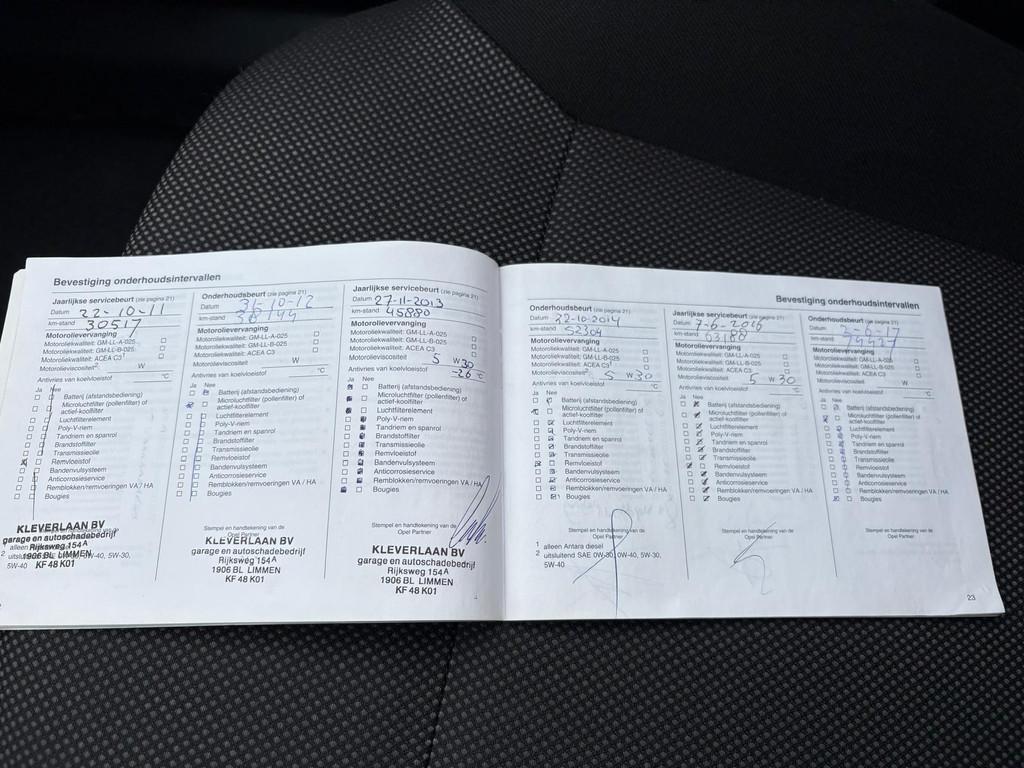 Bevestiging onderhoudsintervallen
Jaarlijkse servicebeurt (zie pagina 21)
Datum 22-10-11
km-stand 30517
Motorolievervanging
Motoroliekwaliteit: GM-LL-A-025
Motoroliekwaliteit: GM-LL-B-025
Motoroliekwaliteit: ACEA C3
Motorolieviscositeit W
Antivries van koelvloeistof °C
Ja Nee
Batterij (afstandsbediening)
Microluchtfilter (pollenfilter) of
actief-koolfilter
Luchtfilterelement
Poly-V-riem
Tandriem en spanrol
Brandstoffilter
Transmissieolie
Remvloeistof
Bandenvulsysteem
Anticorrosieservice
Remblokken/remvoeringen VA / HA
Bougies
KLEVERLAAN BV
garage en autoschadebedrijf
Rijksweg 154A
1906 BL LIMMEN
KF 48 K01
1 alleen
2 uitsluitend SAE 0W-30, 0W-40, 5W-30,
5W-40
Onderhoudsbeurt (zie pagina 21)
Datum 31-10-12
km-stand
Motorolievervanging
Motoroliekwaliteit: GM-LL-A-025
Motoroliekwaliteit: GM-LL-B-025
Motoroliekwaliteit: ACEA C3
Motorolieviscositeit W
Antivries van koelvloeistof °C
Ja Nee
Batterij (afstandsbediening)
Microluchtfilter (pollenfilter) of
actief-koolfilter
Luchtfilterelement
Poly-V-riem
Tandriem en spanrol
Brandstoffilter
Transmissieolie
Remvloeistof
Bandenvulsysteem
Anticorrosieservice
Remblokken/remvoeringen VA / HA
Bougies
Stempel en handtekening van de
Opel Partner
KLEVERLAAN BV
garage en autoschadebedrijf
Rijksweg 154A
1906 BL LIMMEN
KF 48 K01
Jaarlijkse servicebeurt (zie pagina 21)
Datum 27-11-2013
km-stand 45880
Motorolievervanging
Motoroliekwaliteit: GM-LL-A-025
Motoroliekwaliteit: GM-LL-B-025
Motoroliekwaliteit: ACEA C3
Motorolieviscositeit 5 W 30
Antivries van koelvloeistof -26 °C
Ja Nee
Batterij (afstandsbediening)
Microluchtfilter (pollenfilter) of
actief-koolfilter
Luchtfilterelement
Poly-V-riem
Tandriem en spanrol
Brandstoffilter
Transmissieolie
Remvloeistof
Bandenvulsysteem
Anticorrosieservice
Remblokken/remvoeringen VA / HA
Bougies
Stempel en handtekening van de
Opel Partner
KLEVERLAAN BV
garage en autoschadebedrijf
Rijksweg 154A
1906 BL LIMMEN
KF 48 K01
Bevestiging onderhoudsintervallen
Onderhoudsbeurt (zie pagina 21)
Datum 22-10-2014
km-stand 52304
Motorolievervanging
Motoroliekwaliteit: GM-LL-A-025
Motoroliekwaliteit: GM-LL-B-025
Motoroliekwaliteit: ACEA C3
Motorolieviscositeit 5 W 30
Antivries van koelvloeistof °C
Ja Nee
Batterij (afstandsbediening)
Microluchtfilter (pollenfilter) of
actief-koolfilter
Luchtfilterelement
Poly-V-riem
Tandriem en spanrol
Brandstoffilter
Transmissieolie
Remvloeistof
Bandenvulsysteem
Anticorrosieservice
Remblokken/remvoeringen VA / HA
Bougies
Stempel en handtekening van de
Opel Partner
1 alleen Antara diesel
2 uitsluitend SAE 0W-30, 0W-40, 5W-30,
5W-40
Jaarlijkse servicebeurt (zie pagina 21)
Datum 7-6-2016
km-stand 63180
Motorolievervanging
Motoroliekwaliteit: GM-LL-A-025
Motoroliekwaliteit: GM-LL-B-025
Motoroliekwaliteit: ACEA C3
Motorolieviscositeit 5 W 30
Antivries van koelvloeistof °C
Ja Nee
Batterij (afstandsbediening)
Microluchtfilter (pollenfilter) of
actief-koolfilter
Luchtfilterelement
Poly-V-riem
Tandriem en spanrol
Brandstoffilter
Transmissieolie
Remvloeistof
Bandenvulsysteem
Anticorrosieservice
Remblokken/remvoeringen VA / HA
Bougies
Stempel en handtekening van de
Opel Partner
Onderhoudsbeurt (zie pagina 21)
Datum
km-stand
Motorolievervanging
Motoroliekwaliteit: GM-LL-A-025
Motoroliekwaliteit: GM-LL-B-025
Motoroliekwaliteit: ACEA C3
Motorolieviscositeit W
Antivries van koelvloeistof °C
Ja Nee
Batterij (afstandsbediening)
Microluchtfilter (pollenfilter) of
actief-koolfilter
Luchtfilterelement
Poly-V-riem
Tandriem en spanrol
Brandstoffilter
Transmissieolie
Remvloeistof
Bandenvulsysteem
Anticorrosieservice
Remblokken/remvoeringen VA / HA
Bougies
Stempel en handtekening van de
Opel Partner
23